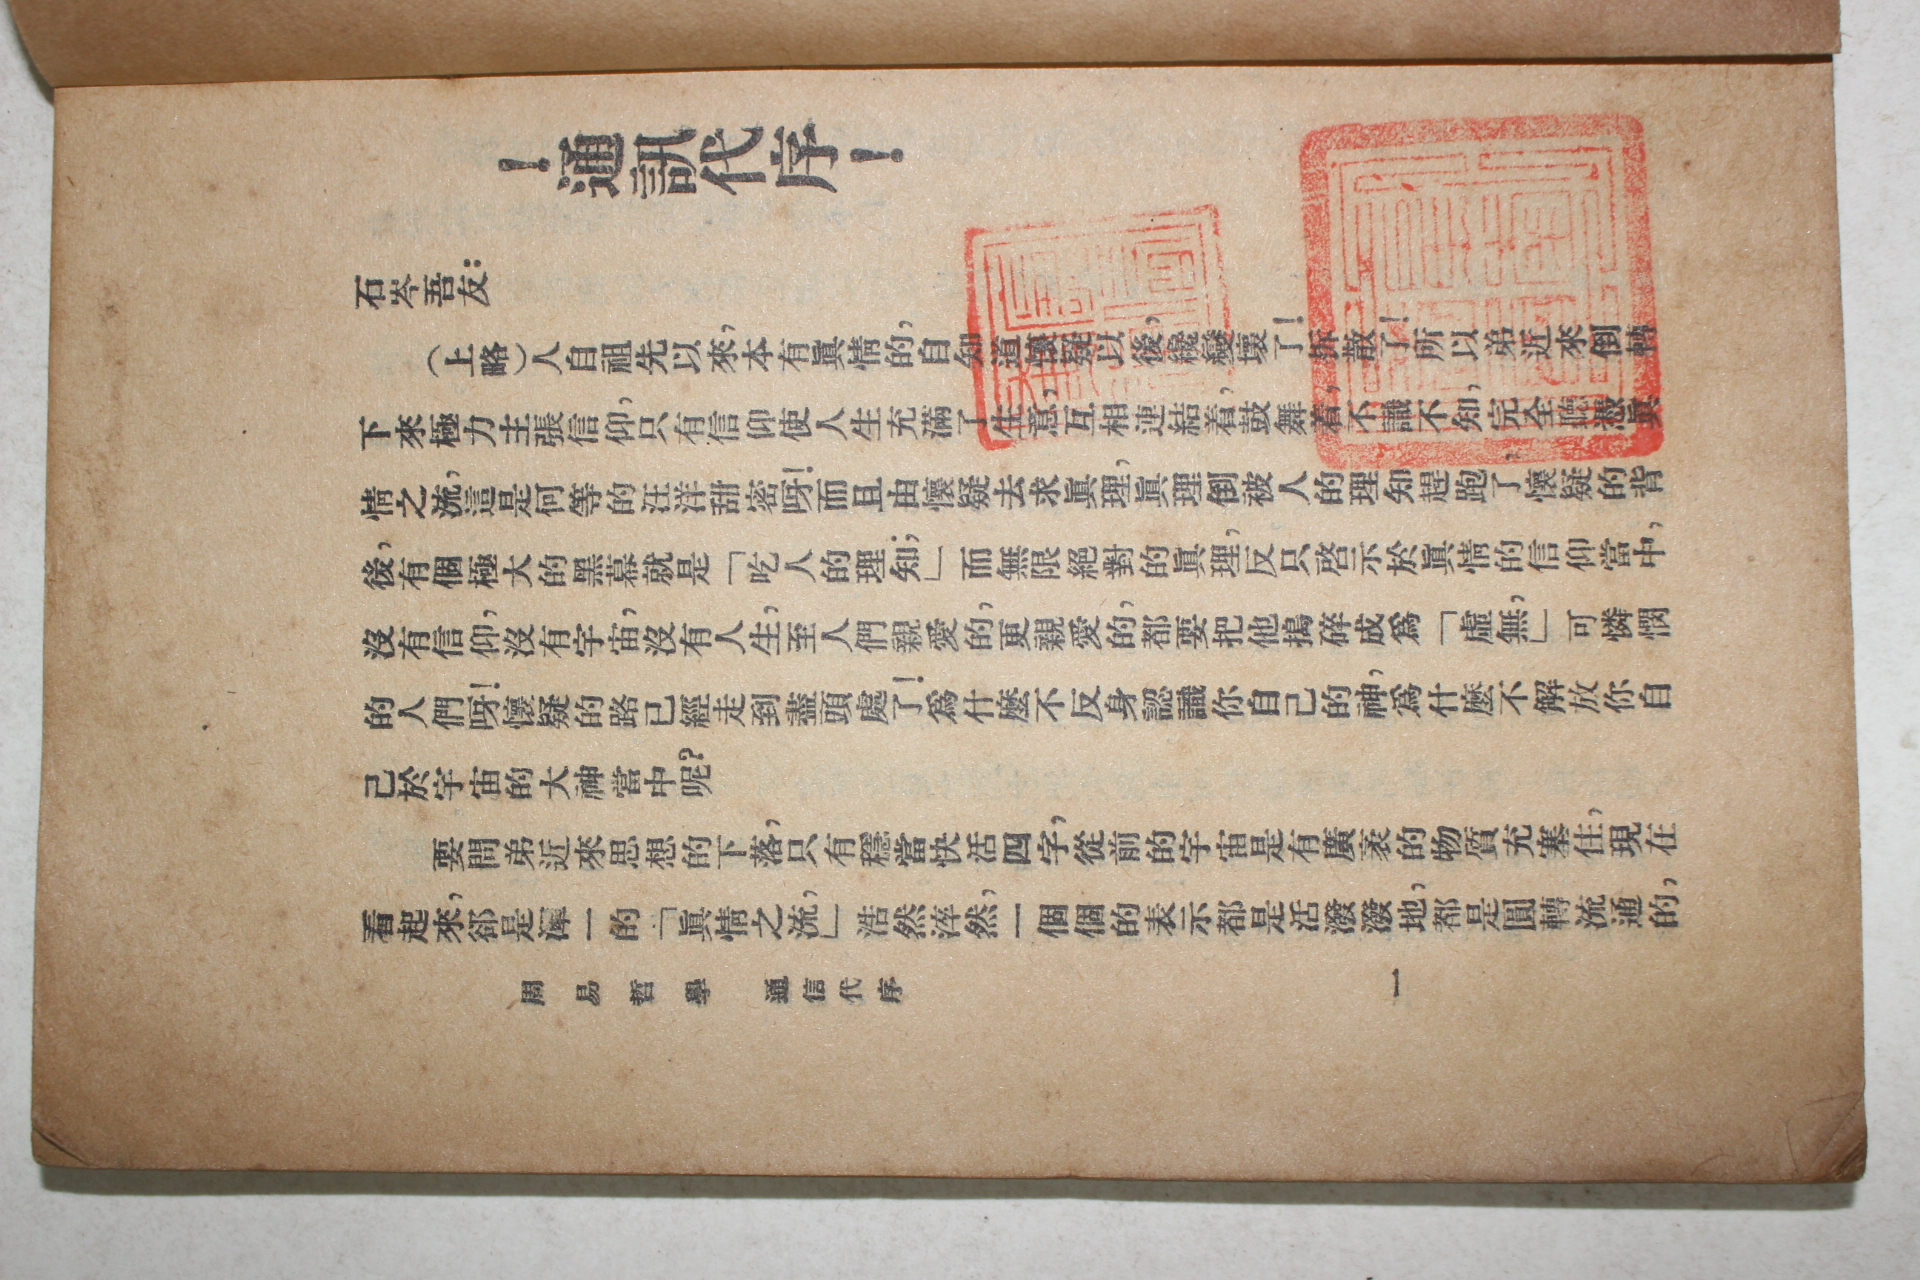 ！通訊代序！
石岑吾友：
（上略）人自祖先以來，本有眞情的，自知道懷疑以後，纔變壞了！拆散了！所以弟近來倒轉
下來極力主張信仰，只有信仰使人生充滿了生意，互相連結着，鼓舞着，不識不知，完全聽憑眞
情之流，這是何等的汪洋甜密呀！而且由懷疑去求眞理，眞理倒被人的理知趕跑了，懷疑的背
後，有個極大的黑幕就是「吃人的理知；」而無限絕對的眞理，反只啓示於眞情的信仰當中，
沒有信仰，沒有宇宙，沒有人生，至人們親愛的，更親愛的，都要把他搗碎成爲「虛無，」可憐憫
的人們呀！懷疑的路已經走到盡頭處了！爲什麼不反身認識你自己的神，爲什麼不解放你自
己於宇宙的大神當中呢？
要問弟近來思想的下落，只有穩當快活四字，從前的宇宙是有廣袤的物質充塞住，現在
看起來，郤是渾一的「眞情之流，」浩然淬然，一個個的表示都是活潑潑地，都是圓轉流通的，
周易哲學　通信代序　一